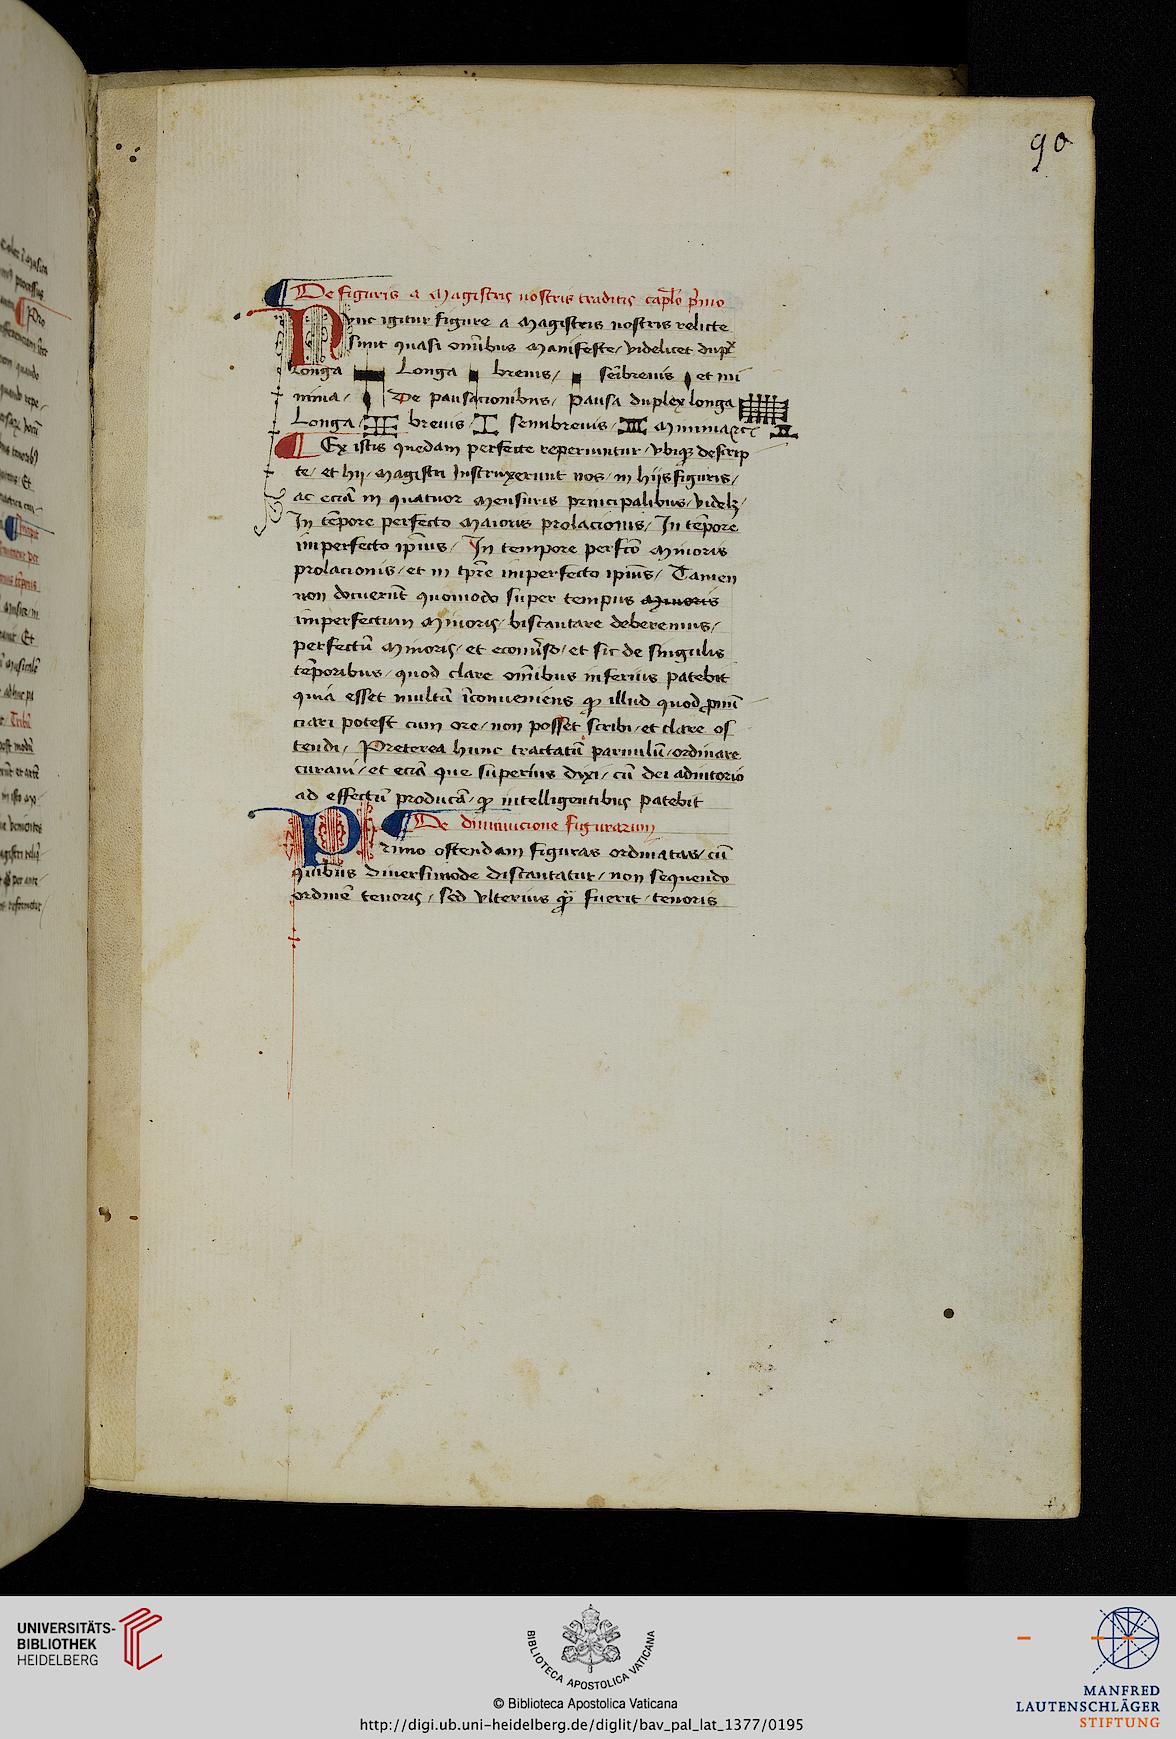 90
De figuris a Magistris nostris traditis capło p̄mo
Nunc igitur figure a Magistris nostris relicte
sunt quasi om̄ibus Manifeste / videlicet dupl̄
Longa Longa brevis / sēibrevis et mi
nima / De pausacionibus / Pausa duplex longa
Longa / brevis / semibrevis / Minima
Ex istis quedam perfecte reperiuntur / ubiqȝ descrip
te / et hij / Magistri Instruxerunt nos / in hijs figuris /
ac eciā in quatuor Mensuris principalibus / videlȝ
In tēpore perfecto Maioris prolacionis / In tēpore
imperfecto ip̄ius / In tempore perfcō Minoris
prolacionis / et in tp̄re imperfecto ip̄ius / Tamen
non docuerūt quomodo super tempus Minoris
imperfectum Minoris / discantare deberemus /
perfectū Minoris / et econv̄so / et sic de singulis
tēporibus / quod clare om̄ibus inferius patebit
quia esset multū īconveniens ꝙ illud quod ꝓnū
ciari potest cum ore / non posset scribi / et clare os
tendi / Preterea hunc tractatū parvulū / ordinare
curavi / et eciā que superius dixi / cū dei adiutorio
ad effectū producā / ꝙ intelligentibus patebit
De diminucione figurarum
Primo ostendam figuras ordinatas / cū
quibus diversimode discantatur / non sequendo
ordinē tenoris / sed ulterius fuerit / tenoris
UNIVERSITÄTS-
BIBLIOTHEK
HEIDELBERG
BIBLIOTECA APOSTOLICA VATICANA
© Biblioteca Apostolica Vaticana
http://digi.ub.uni-heidelberg.de/diglit/bav_pal_lat_1377/0195
MANFRED
LAUTENSCHLÄGER
STIFTUNG